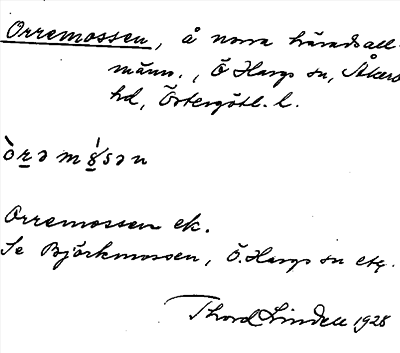 Orremossen, å norra häradsall-
männ., Ö. Hargs sn, Åkerbo
hd, Östergötl. l.
òrəmåsən
Orremossen ek.
Se Björkmossen, Ö. Hargs sn etc.
Thord Lindell 1928